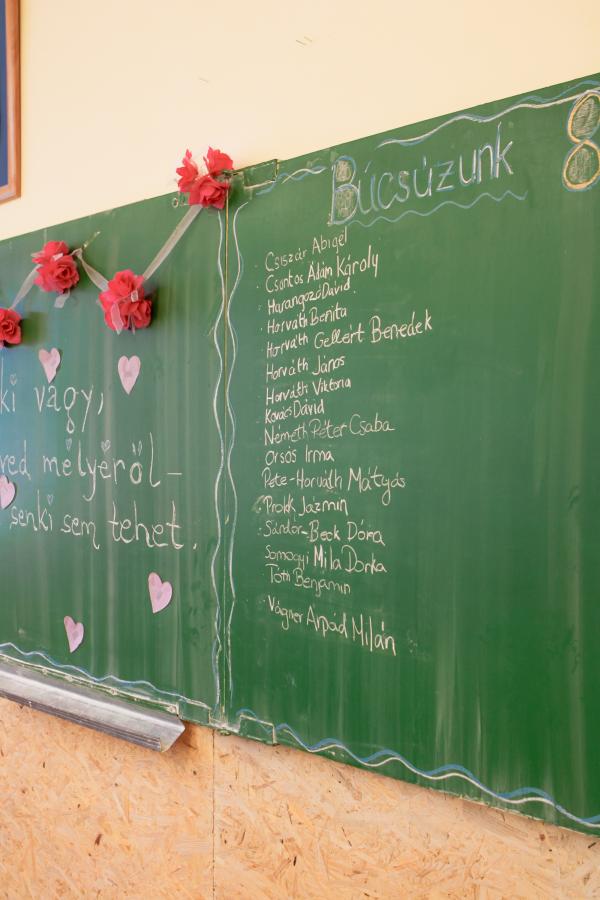 ki vagy,
ved mélyéről-
senki sem tehet.
Búcsúzunk 8
Csiszár Abigél
Csontos Ádám Károly
Harangozó Dávid
Horváth Benita
Horváth Gellért Benedek
Horváth János
Horváth Viktoria
Kovács Dávid
Németh Péter Csaba
Orsós Irma
Pete-Horváth Mátyás
Prokk Jázmin
Sándor-Beck Dóra
Somogyi Mila Dorka
Tóth Benjamin
Vágner Árpád Milán